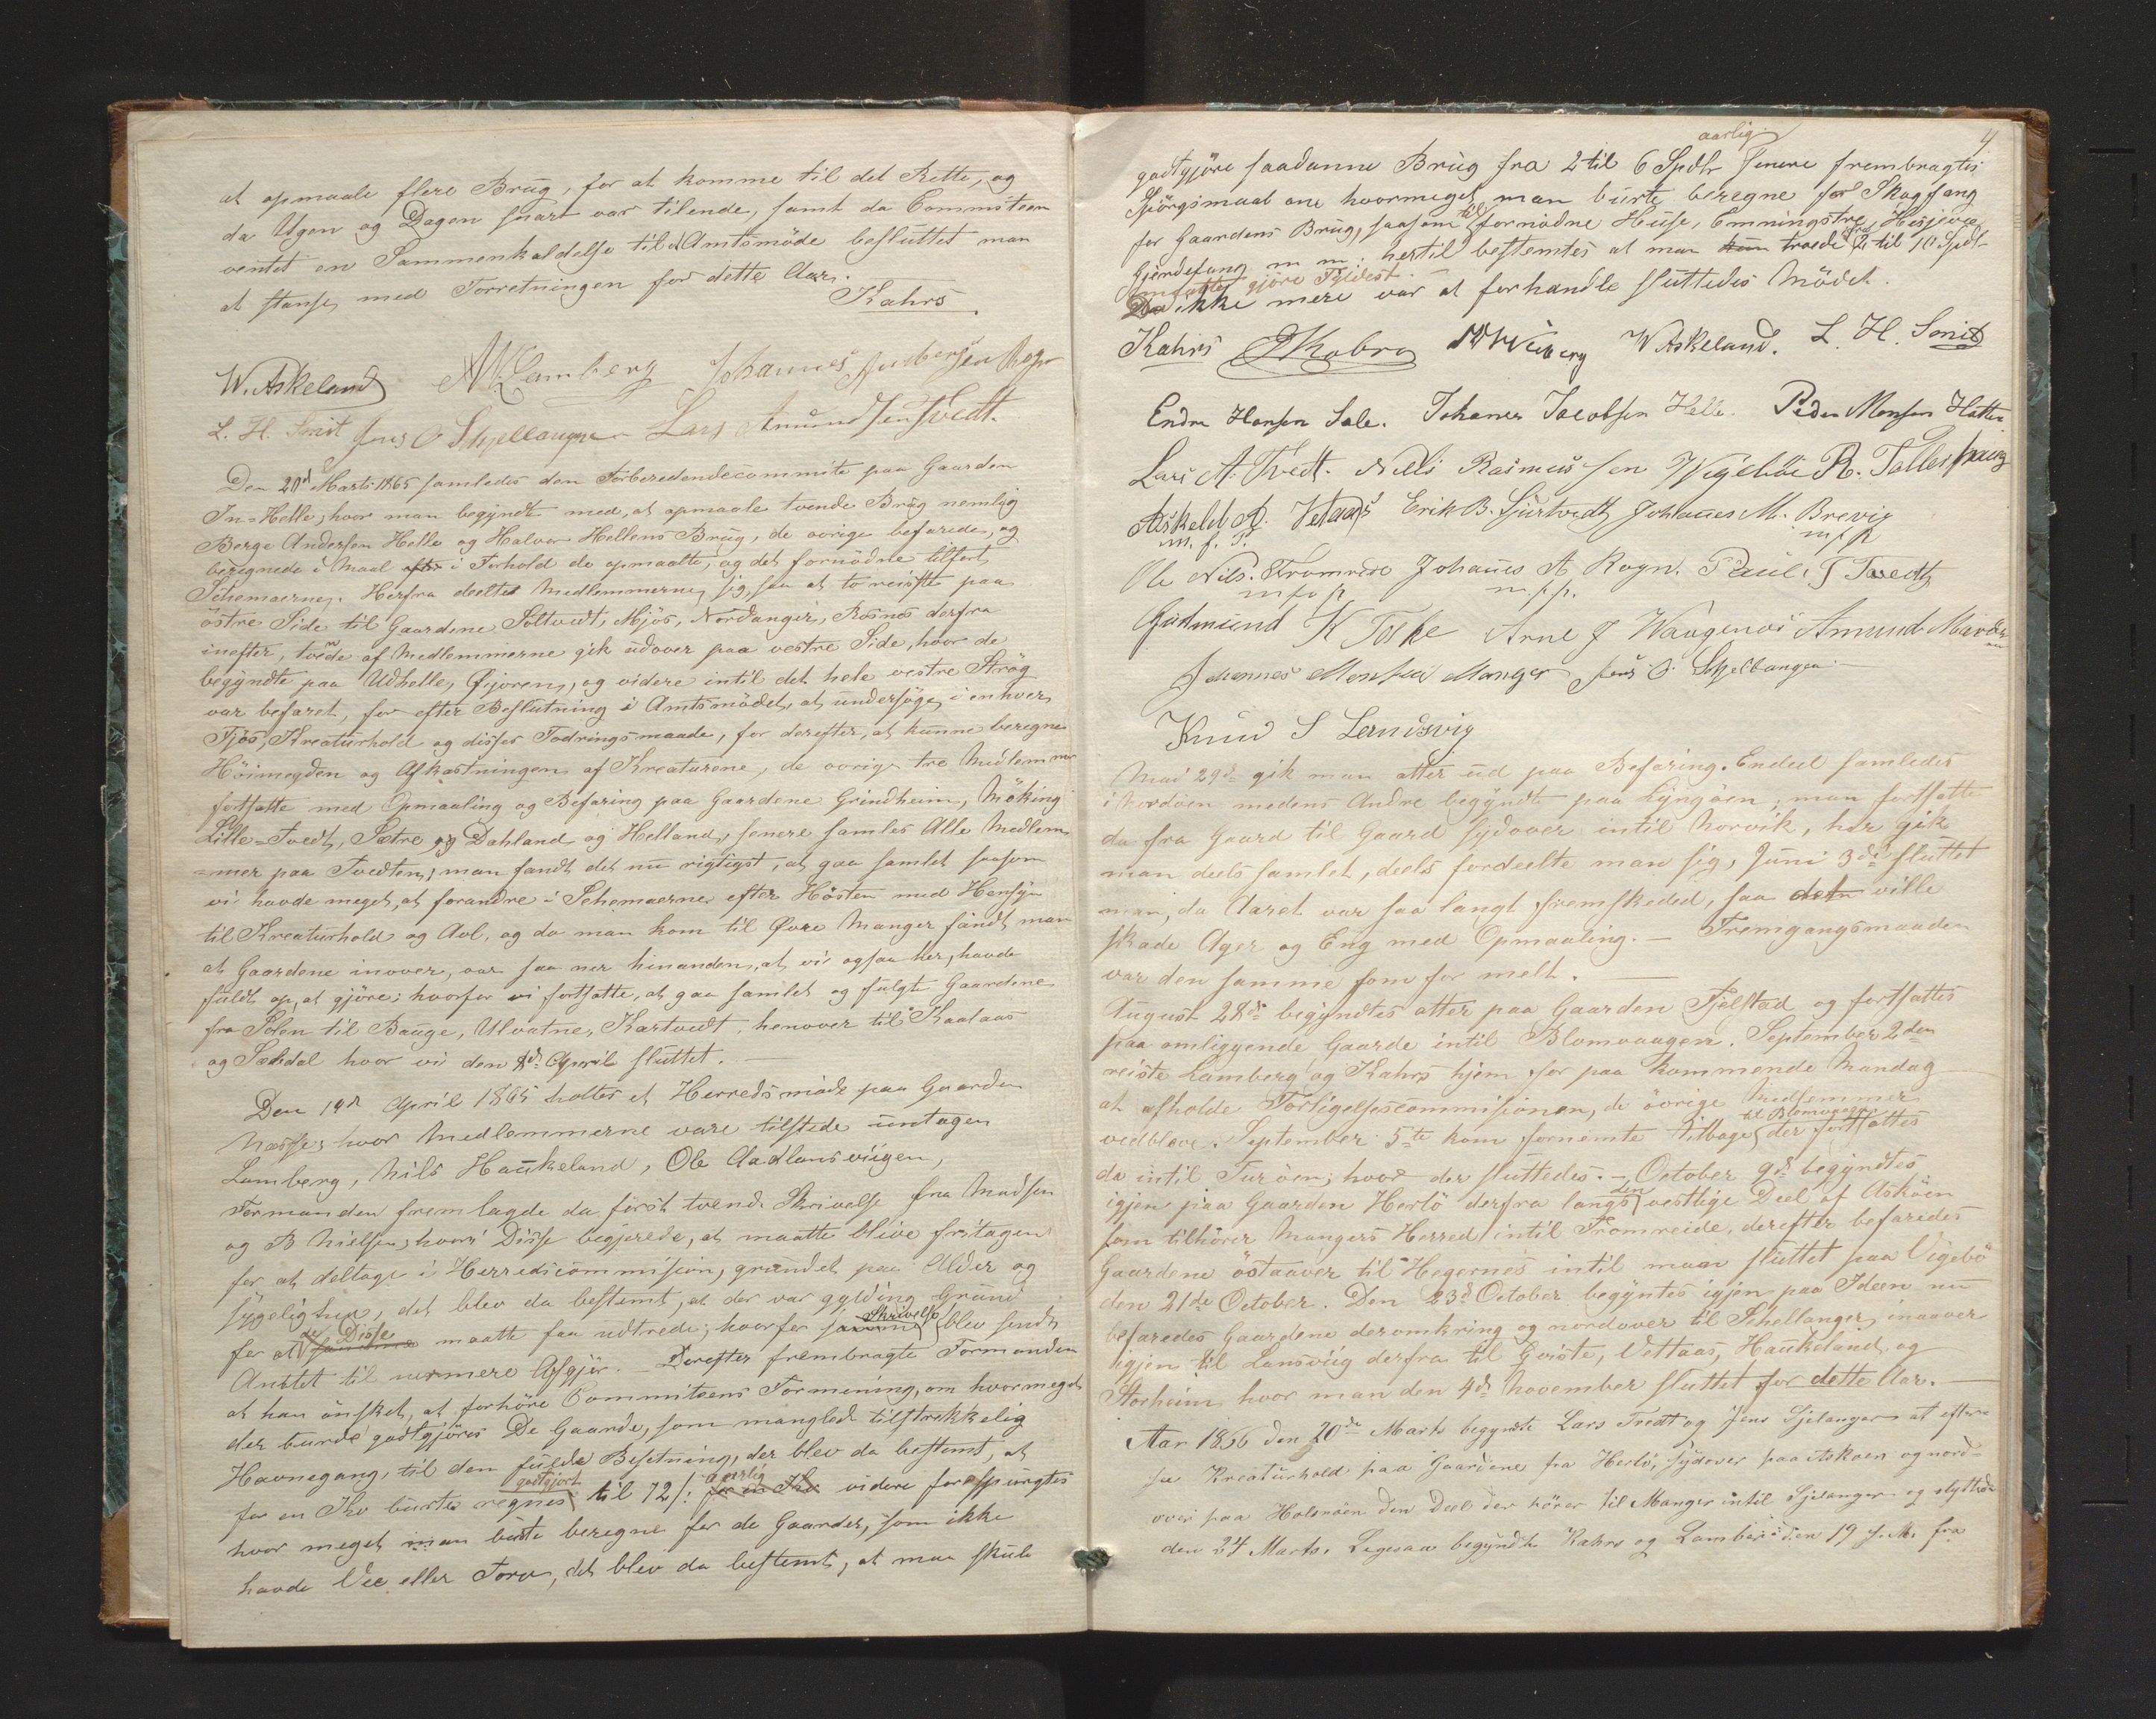 at opmaale flere Brug, for at komme til det Rette, og
da Ugen og Dagen snart var tilende, samt da Commiteen
ventet en Sammenkaldelse til Amtsmöde besluttet man
at stanse med Forretningen for dette Aar.
Kahrs
W. Askeland A K Lamberg Johannes Andersen Rogn
L. H. Smit Jens O Skjellanger Lars Amundsen Tvedt.
Den 20de Marts 1865 samledes den Forberedendecommite paa Gaarden
In-Helle, hvor man begyndte med, at opmaale tvende Brug nemlig
Berge Andersen Helle og Halvor Hellens Brug, de övrige befarede, og
beregnede i Maal efter i Forhold de opmaalte, og det fornödne tilfört
Schemaerne. Herfra deeltes Medlemmerne sig, saa at to reiste paa
östre Side til Gaardene Soltvedt, Mjös, Nordanger, Rosnes derfra
inefter, tvende af Medlemmerne gik udover paa vestre Side, hvor de
begyndte paa Udhelle, Öyjoren, og videre intil det hele vestre Strög
var befaret, for efter Beslutning i Amtsmödet, at undersöge i enhver
Fjös, Kreaturhold og disses Fodringsmaade, for derefter, at kunne beregne
Höimegden og Afkastningen af Kreaturene, de övrige tre Medlemmer
fortsatte med Opmaaling og Befaring paa Gaardene Grindheim, Möking
Lille-Tvedt, Sætre og Dahland og Helland, senere samles Alle Medlem-
-mer paa Tvedten, man fandt det nu rigtigst, at gaa samlet saasom
vi havde meget, at forandre i Schemaerne efter Hösten med Hensyn
til Kreaturhold og Avl, og da man kom til Övre Manger fandt man
at Gaardene inover, var saa nær hinanden, at vi ogsaa her, havde
fuldt op, at gjöre; hvorfor vi fortsatte, at gaa samlet og fulgte Gaardene
fra Solen til Bauge, Ulvatne, Kartvedt, henover til Kaalaas
og Sædal hvor vi den 8de April sluttet.
Den 19de April 1865 holtes et Herredsmöde paa Gaarden
Næsse, hvor Medlemmerne vare tilstede untagen
Lamberg, Nils Haukeland, Ole Aadlansviigen,
Formanden fremlagde da först tvende Skrivelse fra Madsen
og B Nielsen, hvori Disse begjerede, at maatte blive fritagen
for at deltage i Herredscommision, grundet paa Alder og
sygelighed, det blev da bestemt, at der var gylding Grund
for at de Disse maatte faa udtrede; hvorfor Skrivelse blev sendt
Amtet til nermere Afgjör. Derefter frembragte Formanden
at han önsket, at forhöre Commiteens Formening, om hvormeget
der burde godtgjöres De Gaarde, som manglede tilstrekkelig
Havnegang, til den fulde Besetning, der blev da bestemt, at
for en Ko burte regnes godtgjort til 72 /: aarlig for en Ko videre forespurgtes
hvor meget man burte beregne for de Gaarder, som ikke
havde Vee eller Torv, det blev da bestemt, at man skule
4
aarlig
godtgjöre saadanne Brug fra 2 til 6 Spdlr Senere frembragtes
Spörgsmaal om hvormeget man burte beregne for Skogfang
for Gaardens Brug, saasom til fornödne Huse, Emningstre, Hesjeve
Gjerdefang m m; hertil bestemtes at man kun troede fra 2 til 10 Spdl-
gjöre Fyldest.
Da ikke mere var at forhandle sluttedes Mödet.
Kahrs W Askeland. L. H. Smit
Endre Hansen Sole. Johanes Jacobsen Helle. Peder Monsen Hatten
Lars A. Tvedt. Nils Rasmussen Vigeböe R. Tolleshaug
Askeld A. Vetaas Erik B. Sjurtvedt Johanes M. Brevig
m. f. P. m f P
Ole Nils. Fromreide Johanes A Rogn. Paul J Tvedt
m f p m. f. p.
Gudmund K Toske Arne J Waagenæs Amund
Johannes Monsen Manger Jens O. Skjellanger
Knud S Landsvig
Mai 29de gik man atter ud paa Befaring. Endeel samledes
i Nordöen medens Andre begyndte paa Lyngöen, man fortsatte
da fra Gaard til Gaard sydover intil Norvik, her gik
man deels samlet, deels fordeelte man sig, Juni 3de sluttet
man, da Aaret var saa langt fremskeded, saa detn ville
skade Ager og Eng med Opmaaling. — Fremgangsmaaden
var den samme som for melt. —
August 28de begyndtes atter paa Gaarden Fjelstad og fortsattes
paa omliggende Gaarde intil Blomvaagen. September 2den
reiste Lamberg og Kahrs hjem for paa kommende Mandag
at afholde Forligelsescommisionen, de övrige Medlemmer
vedbleve. September 5te kom fornemte tilbage til Blomvaagen der fortsattes
da intil Turöen; hvor der sluttedes. — October 9de begyndtes
igjen paa Gaarden Herlö derfra langs den vestlige Deel af Asköen
som tilhörer Mangers Herred intil Fromreide, derefter befaredes
Gaardene östaaver til Hegernes intil man sluttet paa Vigebö
den 21de October. Den 23de October begyntes igjen paa Ideen nu
befaredes Gaardene deromkring og nordover til Schellanger, inaaver
igjen til Lansviig derfra til Hviste, Vettaas, Haukeland, og
Storheim, hvor man den 4de November sluttet for dette Aar. —
Aar 1866 den 20de Marts begynte Lars Tvedt og Jens Sjelanger at efter-
se Kreaturhold paa Gaardene fra Herlö, sydover paa Askøen og nord-
over paa Holsnöen den Deel der hörer til Manger intil Sjelanger og slyttede
den 24 Marts. Ligesaa begyndte Kahrs og Lamberg den 19 s. M. fra